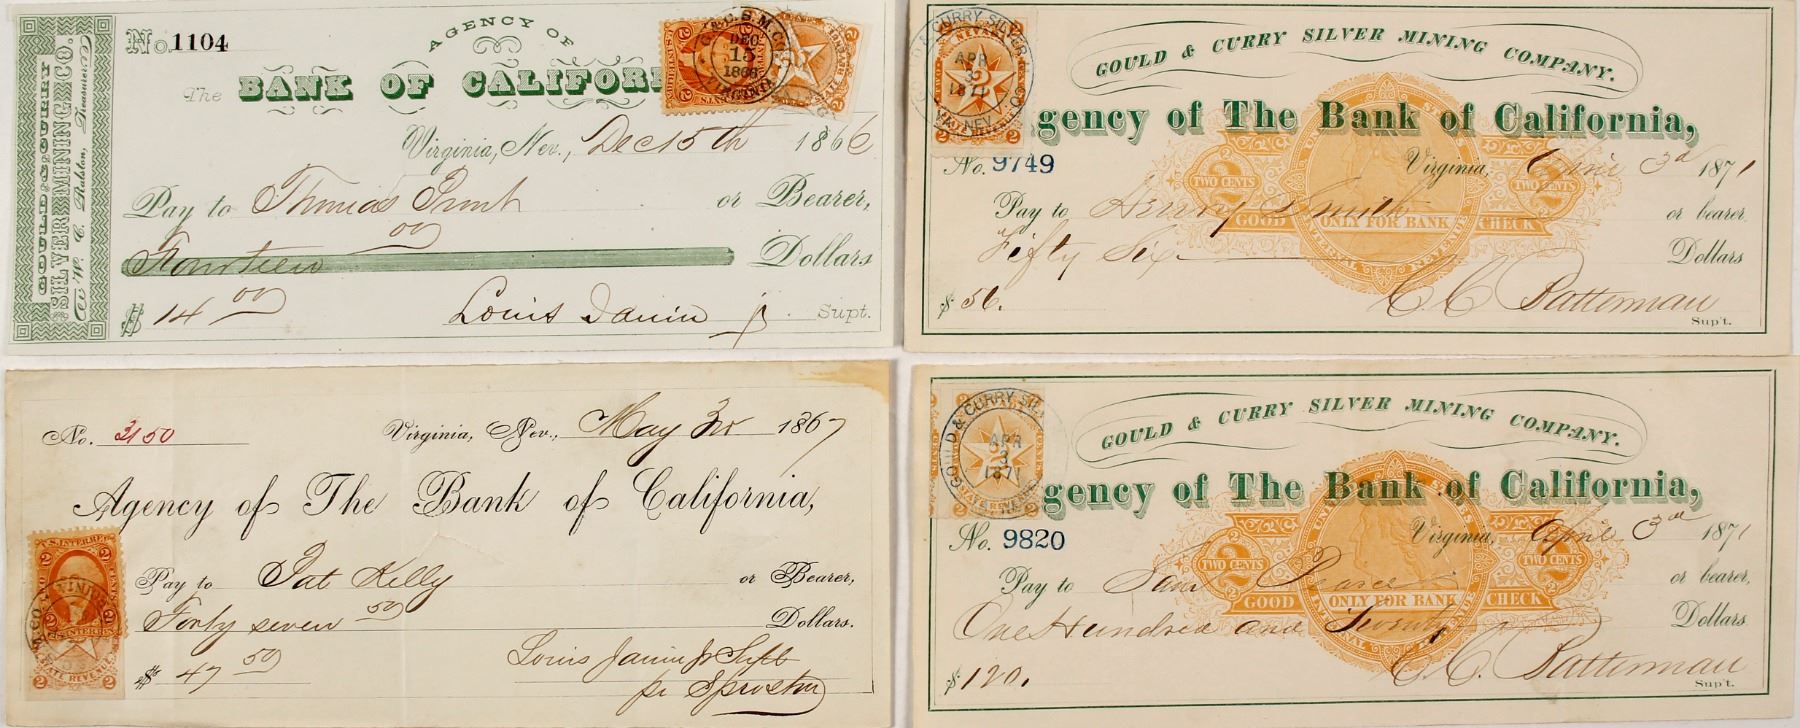 GOULD & CURRY
SILVER MINING CO.
W. C. Ralston, Treasurer
No. 1104
AGENCY OF
The BANK OF CALIFOR
U.S. INTER
DEC
15
1866
VIRGINIA
Virginia, Nev., Dec 15th 1866
Pay to Thomas or Bearer,
Fourteen 00 Dollars
$ 14 00
Louis Janin Jr. Supt.
GOULD & CURRY SILVER MINING COMPANY.
CURRY SILVER
APR
3
1871
NEV.
gency of The Bank of California,
No. 9749
Virginia, April 3d 1871
Pay to Henry Smith or bearer,
Fifty Six Dollars
$ 56.
C. C. Batterman
Sup't.
2 TWO CENTS
TWO CENTS 2
GOOD ONLY FOR BANK CHECK
UNITED STATES
INTERNAL REVENUE
No. 3150
Virginia, Nev., May 3rd 1867
Agency of The Bank of California,
U.S. INTER. REV.
2 CENTS
STATE REVENUE
Pay to Pat Kelly or Bearer,
Forty seven 50 Dollars.
$ 47 50
Louis Janin Jr Supt
pr
GOULD & CURRY SILVER MINING COMPANY.
GOULD & CURRY SIL
APR
3
1871
gency of The Bank of California,
No. 9820
Virginia, April 3rd 1871
Pay to Sam Pearce or bearer,
One Hundred and Twenty Dollars
$ 120.
C. C. Batterman
Sup't.
2 TWO CENTS
TWO CENTS 2
GOOD ONLY FOR BANK CHECK
UNITED STATES
INTERNAL REVENUE